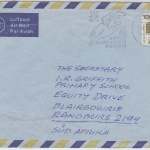 Luftpost
Air Mail
Par Avion
THE SECRETARY
I.R. GRIFFITH
PRIMARY SCHOOL
EQUITY DRIVE
BLAIRGOWRIE
RANDBURG 2194
SÜD AFRIKA